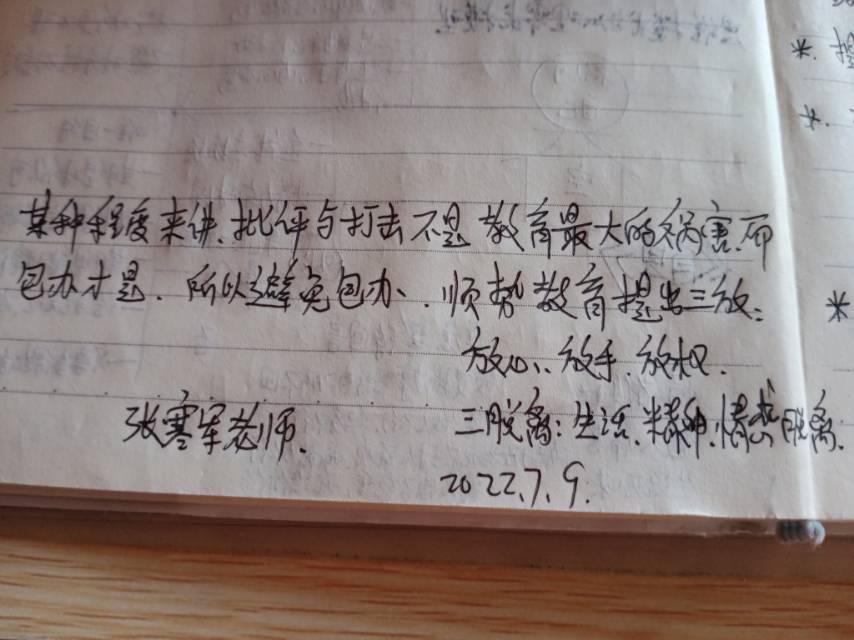 某种程度来讲、批评与打击不是教育最大的祸害、而
包办才是. 所以避免包办. 顺势教育提出三放:
放心、放手. 放权.
张寒军老师. 三脱离: 生活、精神、情感脱离.
2022.7.9.
*. 提
*.
*